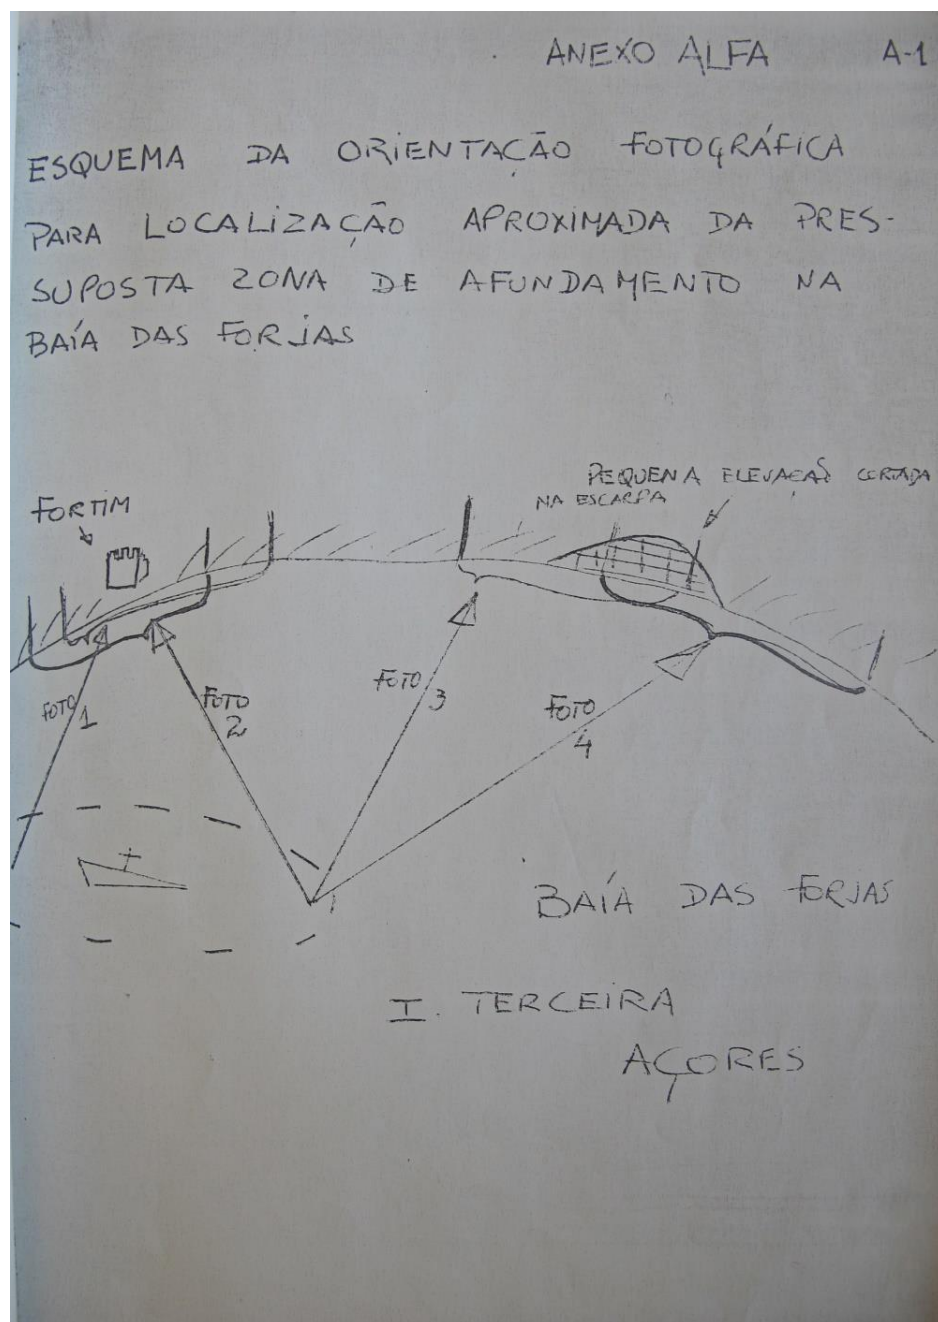 ANEXO ALFA A-1
ESQUEMA DA ORIENTAÇÃO FOTOGRÁFICA
PARA LOCALIZAÇÃO APROXIMADA DA PRES-
SUPOSTA ZONA DE AFUNDAMENTO NA
BAÍA DAS FORJAS
PEQUENA ELEVAÇÃO CORTADA
NA ESCARPA
FORTIM
FOTO 1
FOTO 2
FOTO 3
FOTO 4
BAÍA DAS FORJAS
I. TERCEIRA
AÇORES